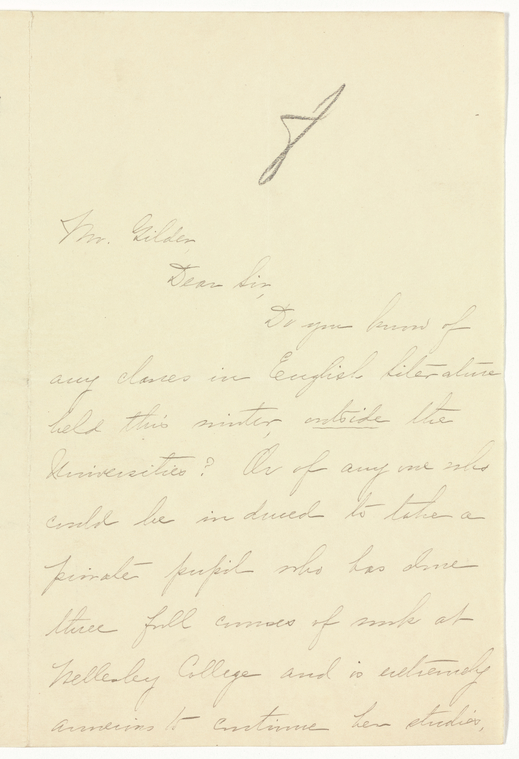 Mr. Gilder,
Dear Sir,
Do you know of
any classes in English Literature
held this winter, outside the
Universities? Or of any one who
could be induced to take a
private pupil who has done
three full courses of work at
Wellesley College and is extremely
anxious to continue her studies,